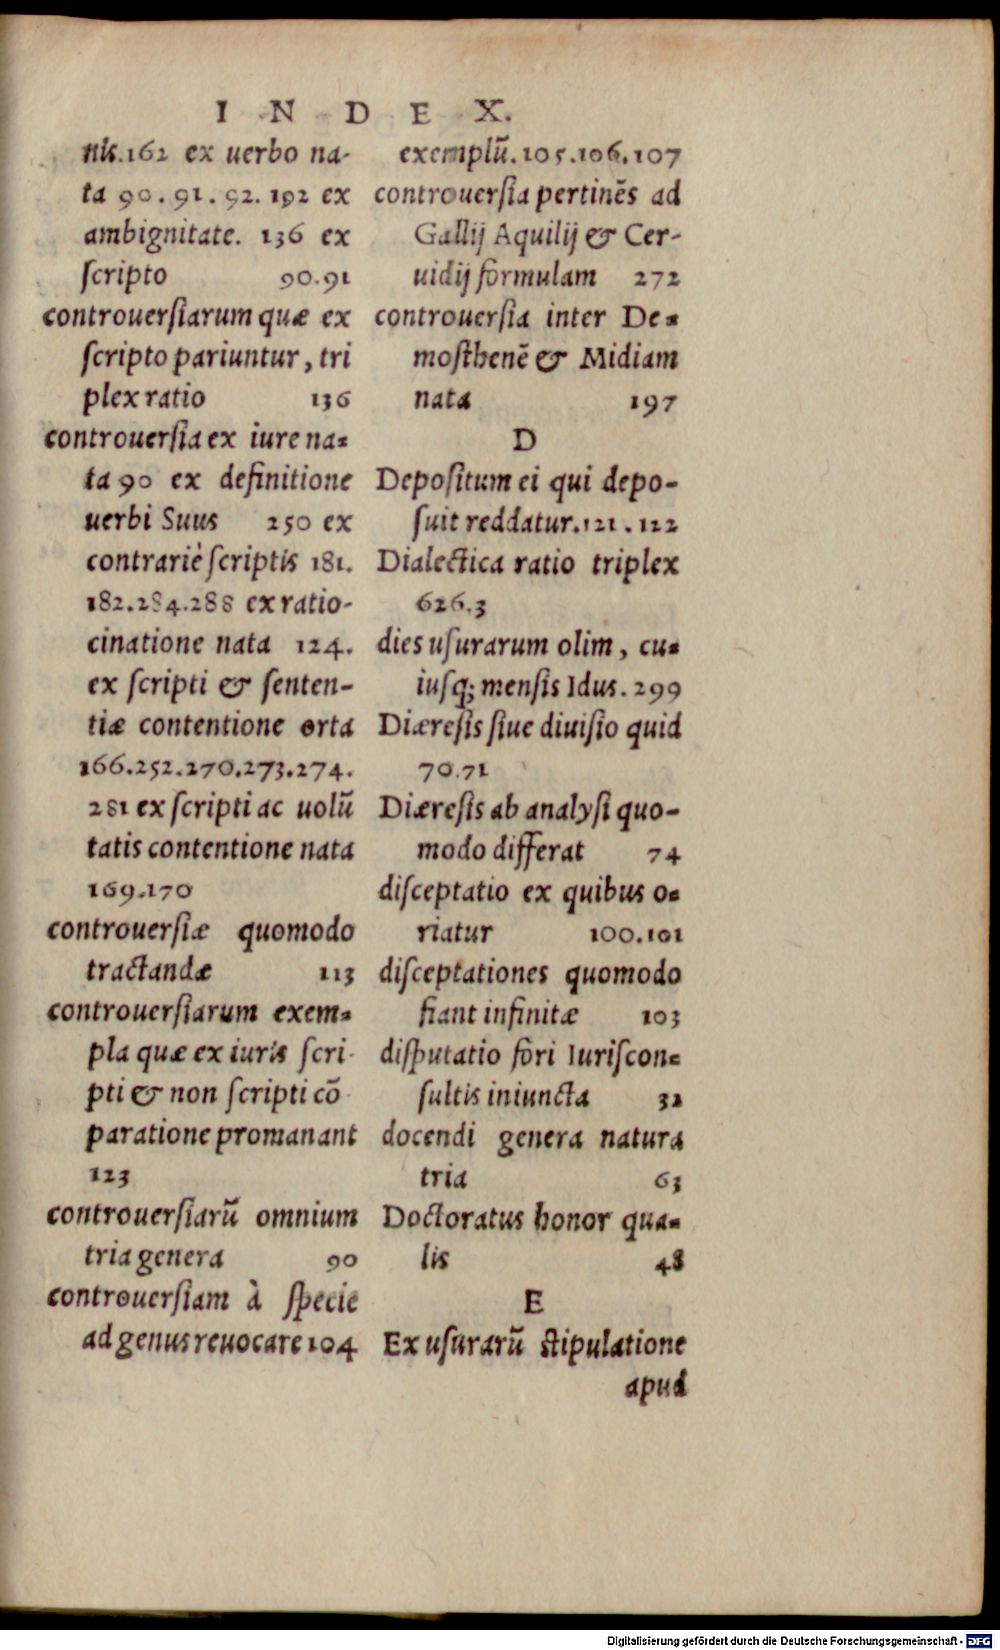 INDEX.
nis.162 ex uerbo na-
ta 90.91.92.192 ex
ambignitate. 136 ex
ſcripto 90.91
controuerſiarum quæ ex
ſcripto pariuntur, tri
plex ratio 136
controuerſia ex iure na-
ta 90 ex definitione
uerbi Suus 250 ex
contrariè ſcriptis 181.
182.284.288 ex ratio-
cinatione nata 124.
ex ſcripti & ſenten-
tiæ contentione orta
166.252.270.273.274.
281 ex ſcripti ac uolũ
tatis contentione nata
169.170
controuerſiæ quomodo
tractandæ 113
controuerſiarum exem-
pla quæ ex iuris ſcri-
pti & non ſcripti cõ
paratione promanant
123
controuerſiarũ omnium
tria genera 90
controuerſiam à ſpecie
ad genus reuocare 104
exemplũ.105.106.107
controuerſia pertinẽs ad
Gallij Aquilij & Cer-
uidij formulam 272
controuerſia inter De-
moſthenẽ & Midiam
nata 197
D
Depoſitum ei qui depo-
ſuit reddatur.121.122
Dialectica ratio triplex
626.3
dies uſurarum olim, cu-
iuſq; menſis Idus. 299
Diæreſis ſiue diuiſio quid
70.71
Diæreſis ab analyſi quo-
modo differat 74
diſceptatio ex quibus o-
riatur 100.101
diſceptationes quomodo
fiant infinitæ 103
diſputatio fori Iuriſcon-
ſultis iniuncta 32
docendi genera natura
tria 63
Doctoratus honor qua-
lis 48
E
Ex uſurarũ ſtipulatione
apud
Digitalisierung gefördert durch die Deutsche Forschungsgemeinschaft - DFG